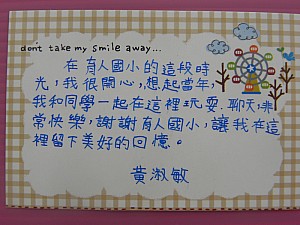 don't take my smile away...
在育人國小的這段時
光，我很開心，想起當年，
我和同學一起在這裡玩耍、聊天非
常快樂，謝謝育人國小，讓我在這
裡留下美好的回憶。
黃淑敏